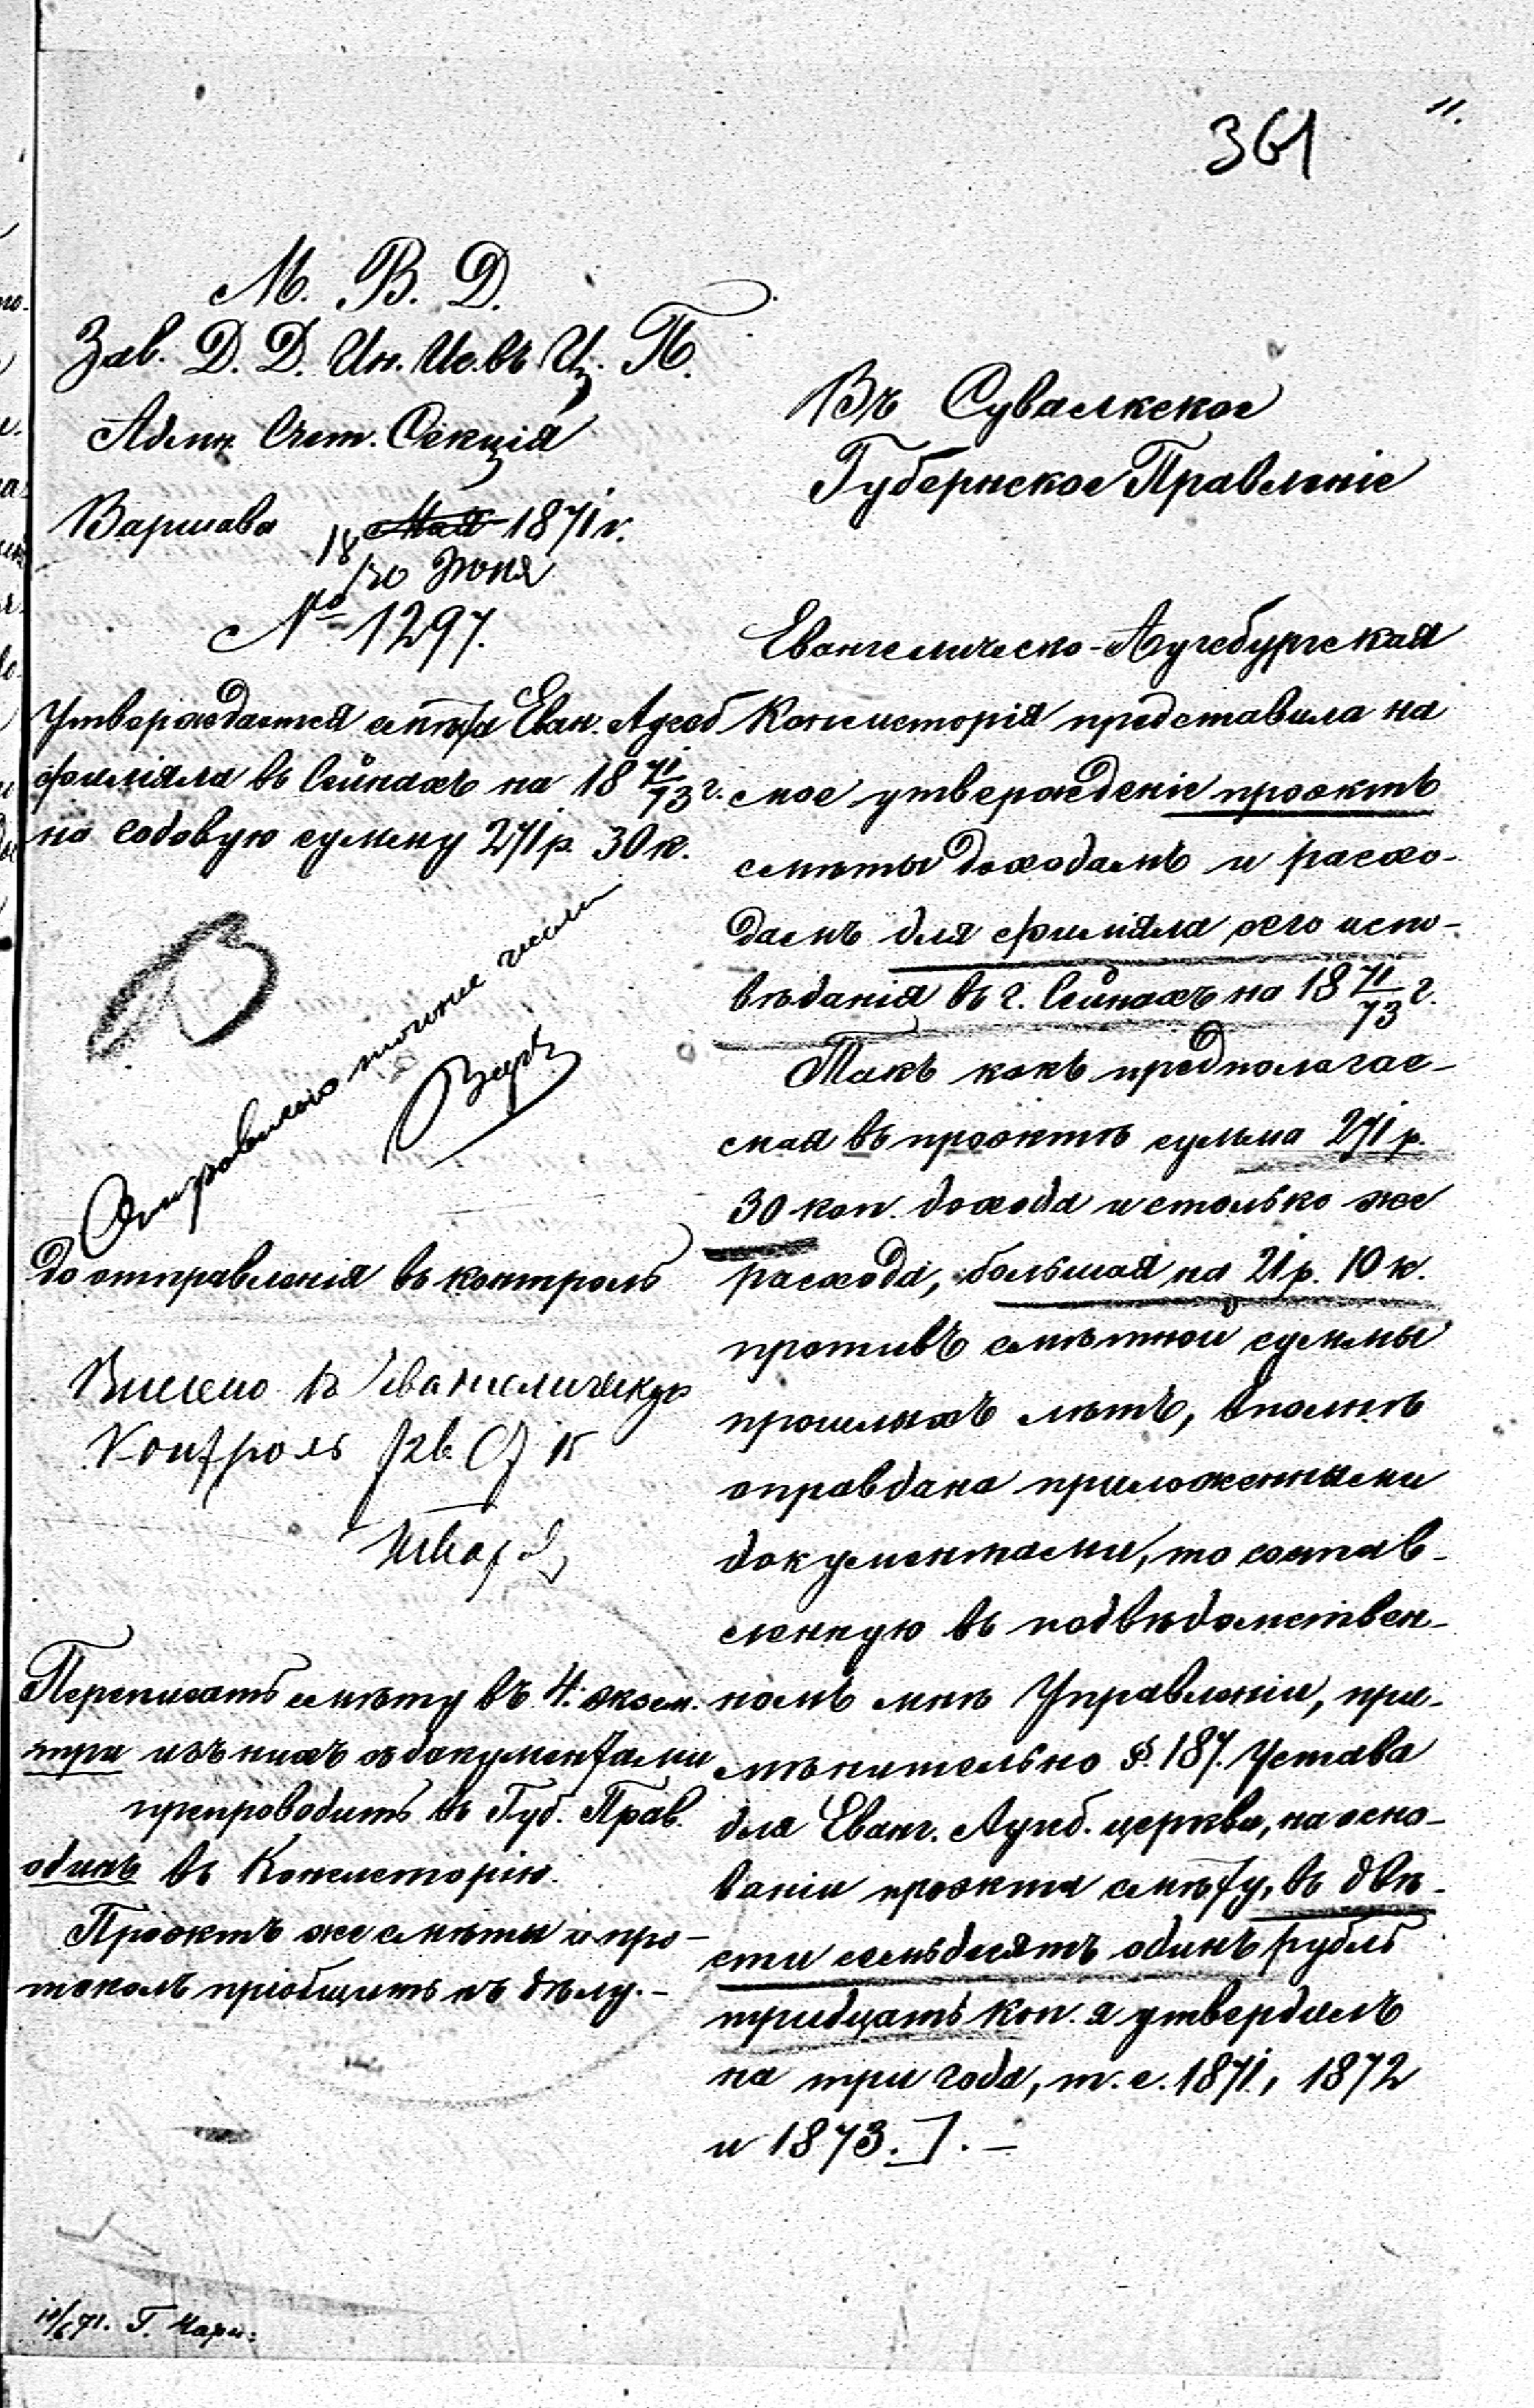 11.
361
М. В. Д.
Зав. Д. Д. Ин. Ис. въ Ц. П.
Адми Счет. Секція
Варшава 18 Мая 1871 г.
/30 Іюня
№ 1297.
Утверждается смѣта Еван. Аугсб
филіяла въ Сейнахъ на 18 71/73 г.
на годовую сумму 271 р. 30 к.
В
до отправленія въ контроль
Внесено въ Евангелическую
Контроль
Переписать смѣту въ 4. экзем.
три изъ нихъ съ документами
препроводить въ Губ. Прав.
одинъ въ Консисторію.
Проэктъ же смѣты и про-
токолъ пріобщить къ дѣлу.-
10/6 71. Г.
Въ Сувалкское
Губернское Правленіе
Евангелическо-Аугсбургская
Консисторія представила на
мое утвержденіе проэктъ
смѣты доходамъ и расхо-
дамъ для филіяла сего испо-
вѣданія въ г. Сейнахъ на 18 71/73 г.
Такъ какъ предполагае-
мая въ проэктѣ сумма 271 р.
30 коп. дохода и столько же
расхода, большая на 21 р. 10 к.
противъ смѣтной суммы
прошлыхъ лѣтъ, вполнѣ
оправдана приложенными
документами, то состав-
ленную въ подвѣдомствен-
номъ мнѣ Управленіи, при-
мѣнительно §. 187. Устава
для Еванг. Аугсб. церкви, на осно-
ваніи проэкта смѣту, въ двѣ-
сти семьдесятъ одинъ рубль
тридцать коп. я утвердилъ
на три года, т. е. 1871, 1872
и 1873.]. —